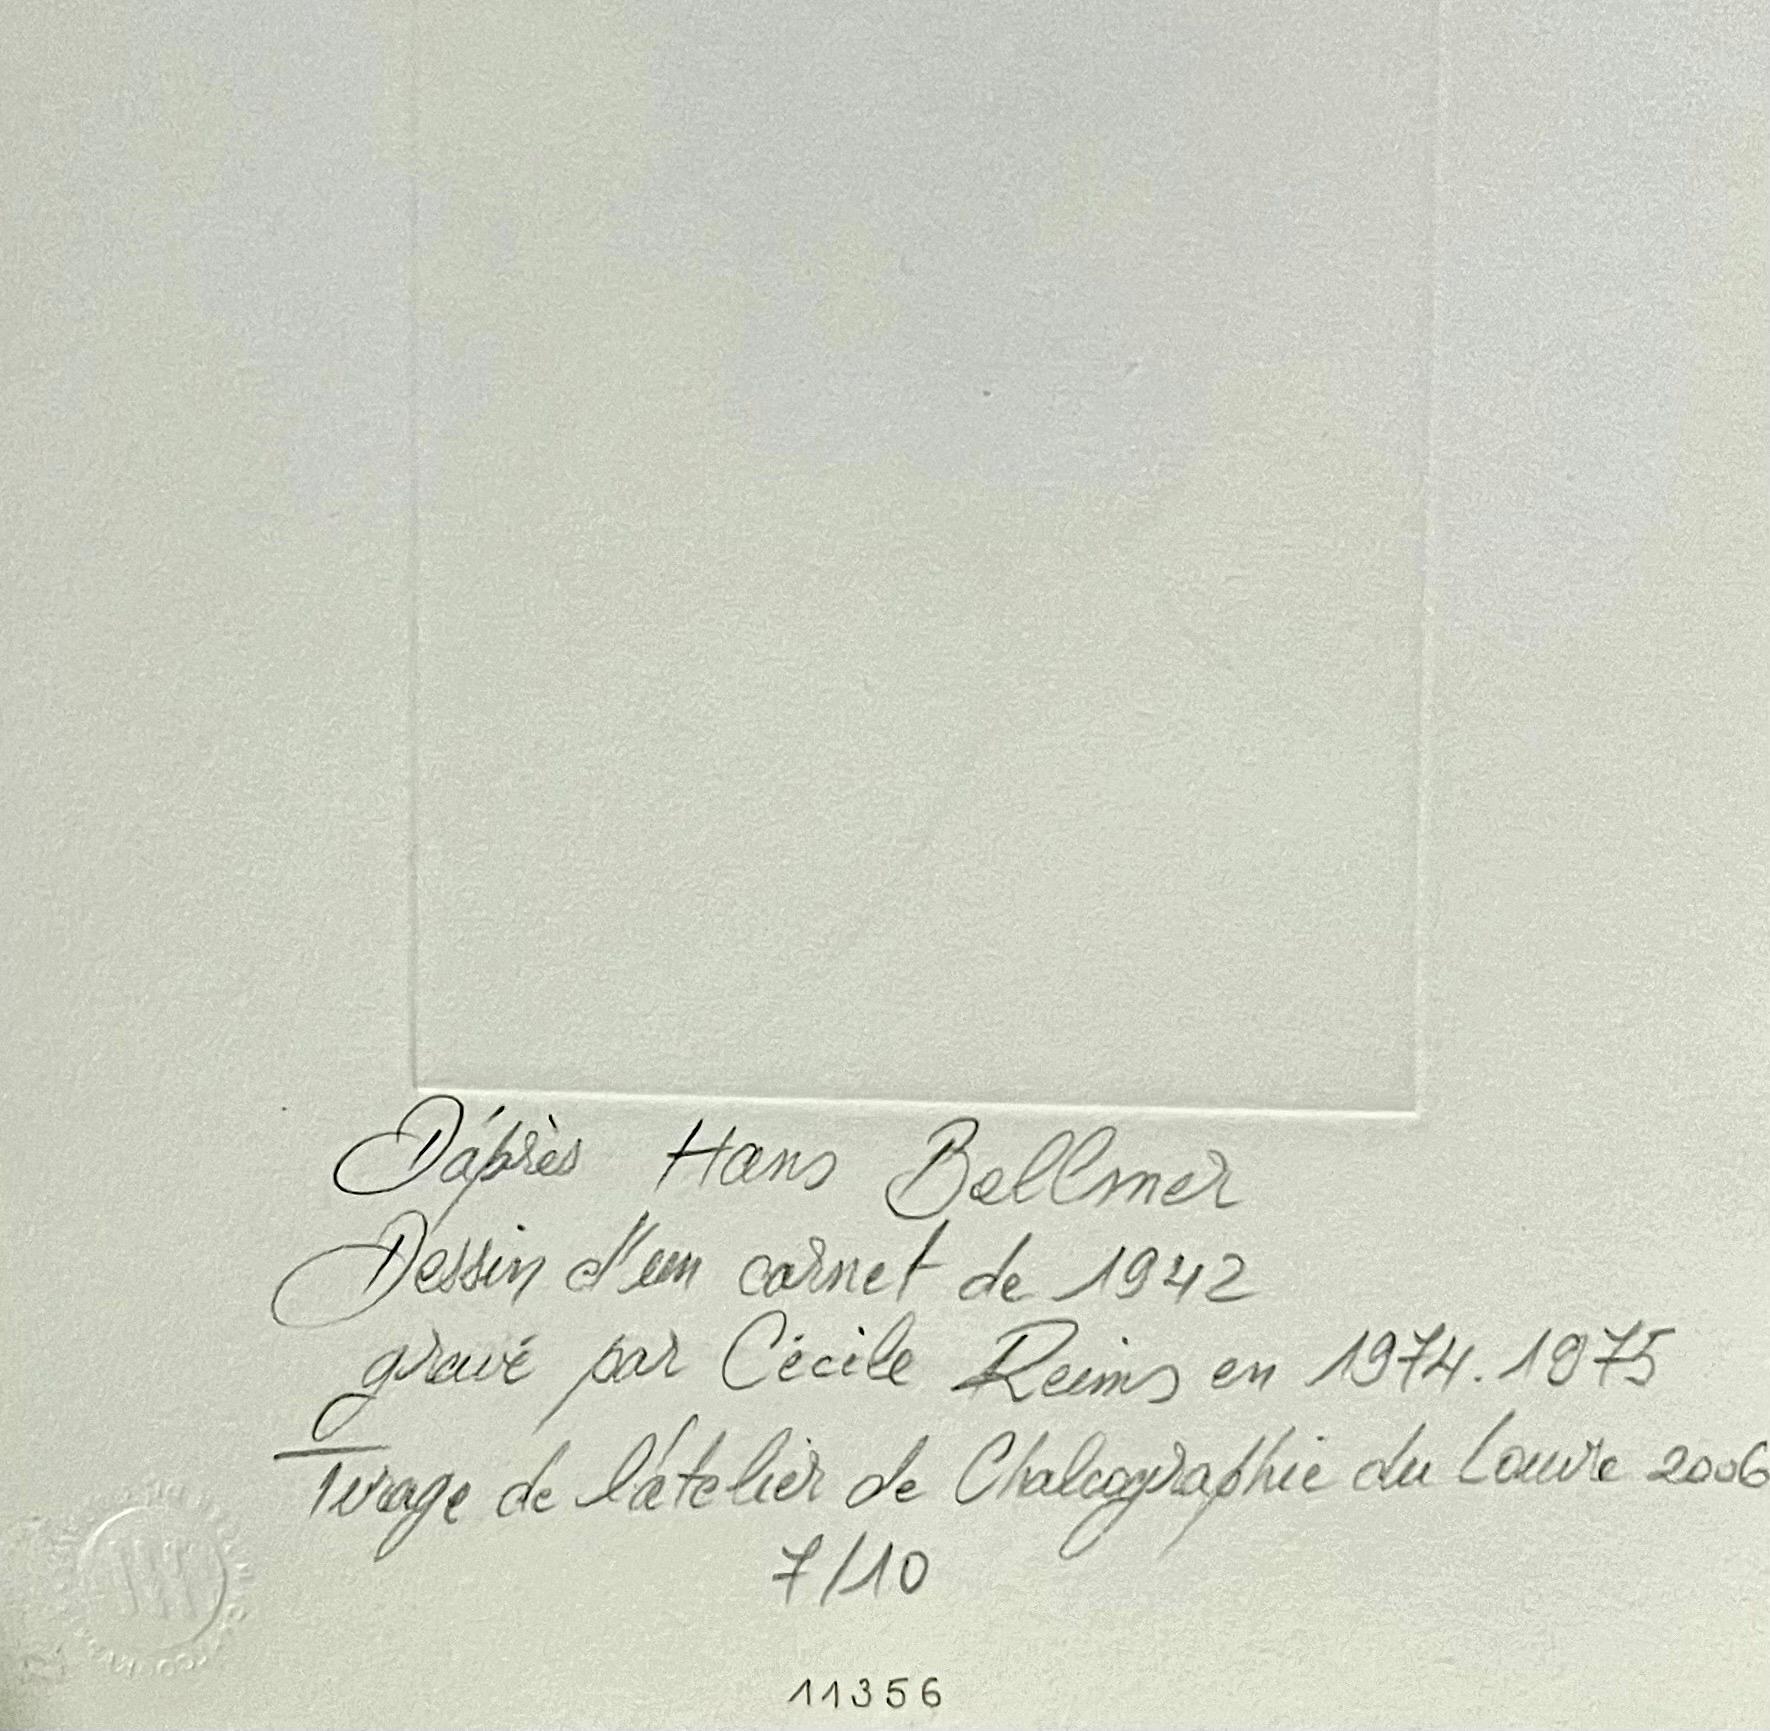 D'après Hans Bellmer
Dessin d'un carnet de 1942
gravé par Cécile Reims en 1974.1975
Tirage de l'atelier de Chalcographie du Louvre 2006
7/10
11356